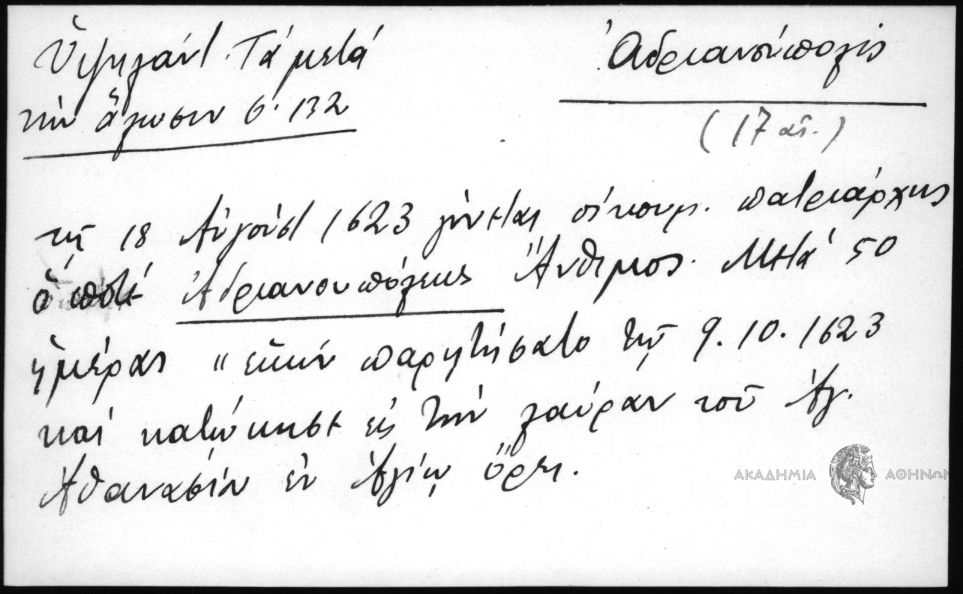 Ὑψηλάντ. Τά μετά
τὴν ἅλωσιν σ. 132
Ἀδριανούπολις
(17 αἰ.)
τῇ 18 Αὐγούστ 1623 γίνεται οἰκουμ. πατριάρχης
ὁ ποτέ Ἀδριανουπόλεως Ἄνθιμος. Μετά 50
ἡμέρας " ἑκών παρῃτήσατο τῇ 9.10.1623
καί κατώκησε εἰς τὴν λαύραν τοῦ Ἁγ.
Ἀθανασίου ἐν Ἁγίῳ Ὄρει.
ΑΚΑΔΗΜΙΑ ΑΘΗΝΩΝ